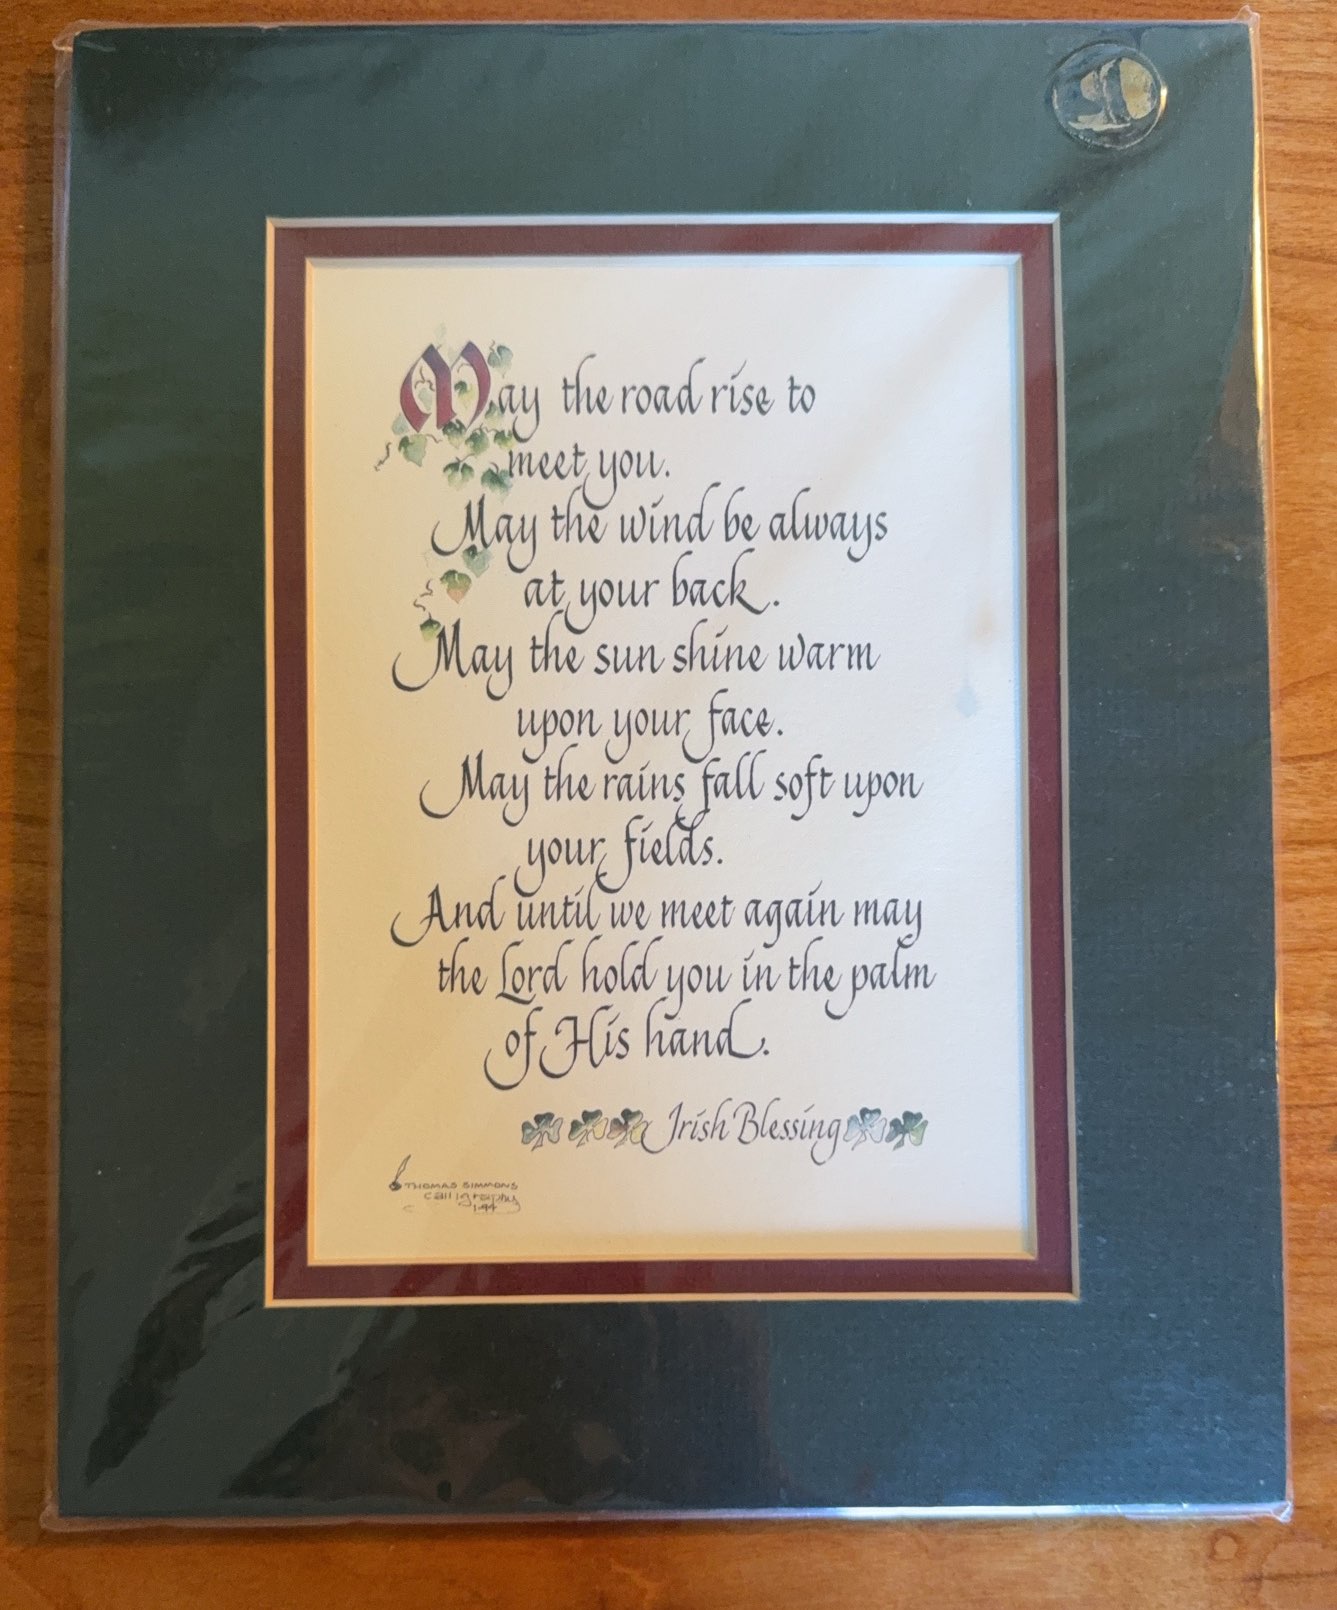 May the road rise to
meet you.
May the wind be always
at your back.
May the sun shine warm
upon your face.
May the rains fall soft upon
your fields.
And until we meet again may
the Lord hold you in the palm
of His hand.
Irish Blessing
THOMAS SIMMONS
Calligraphy